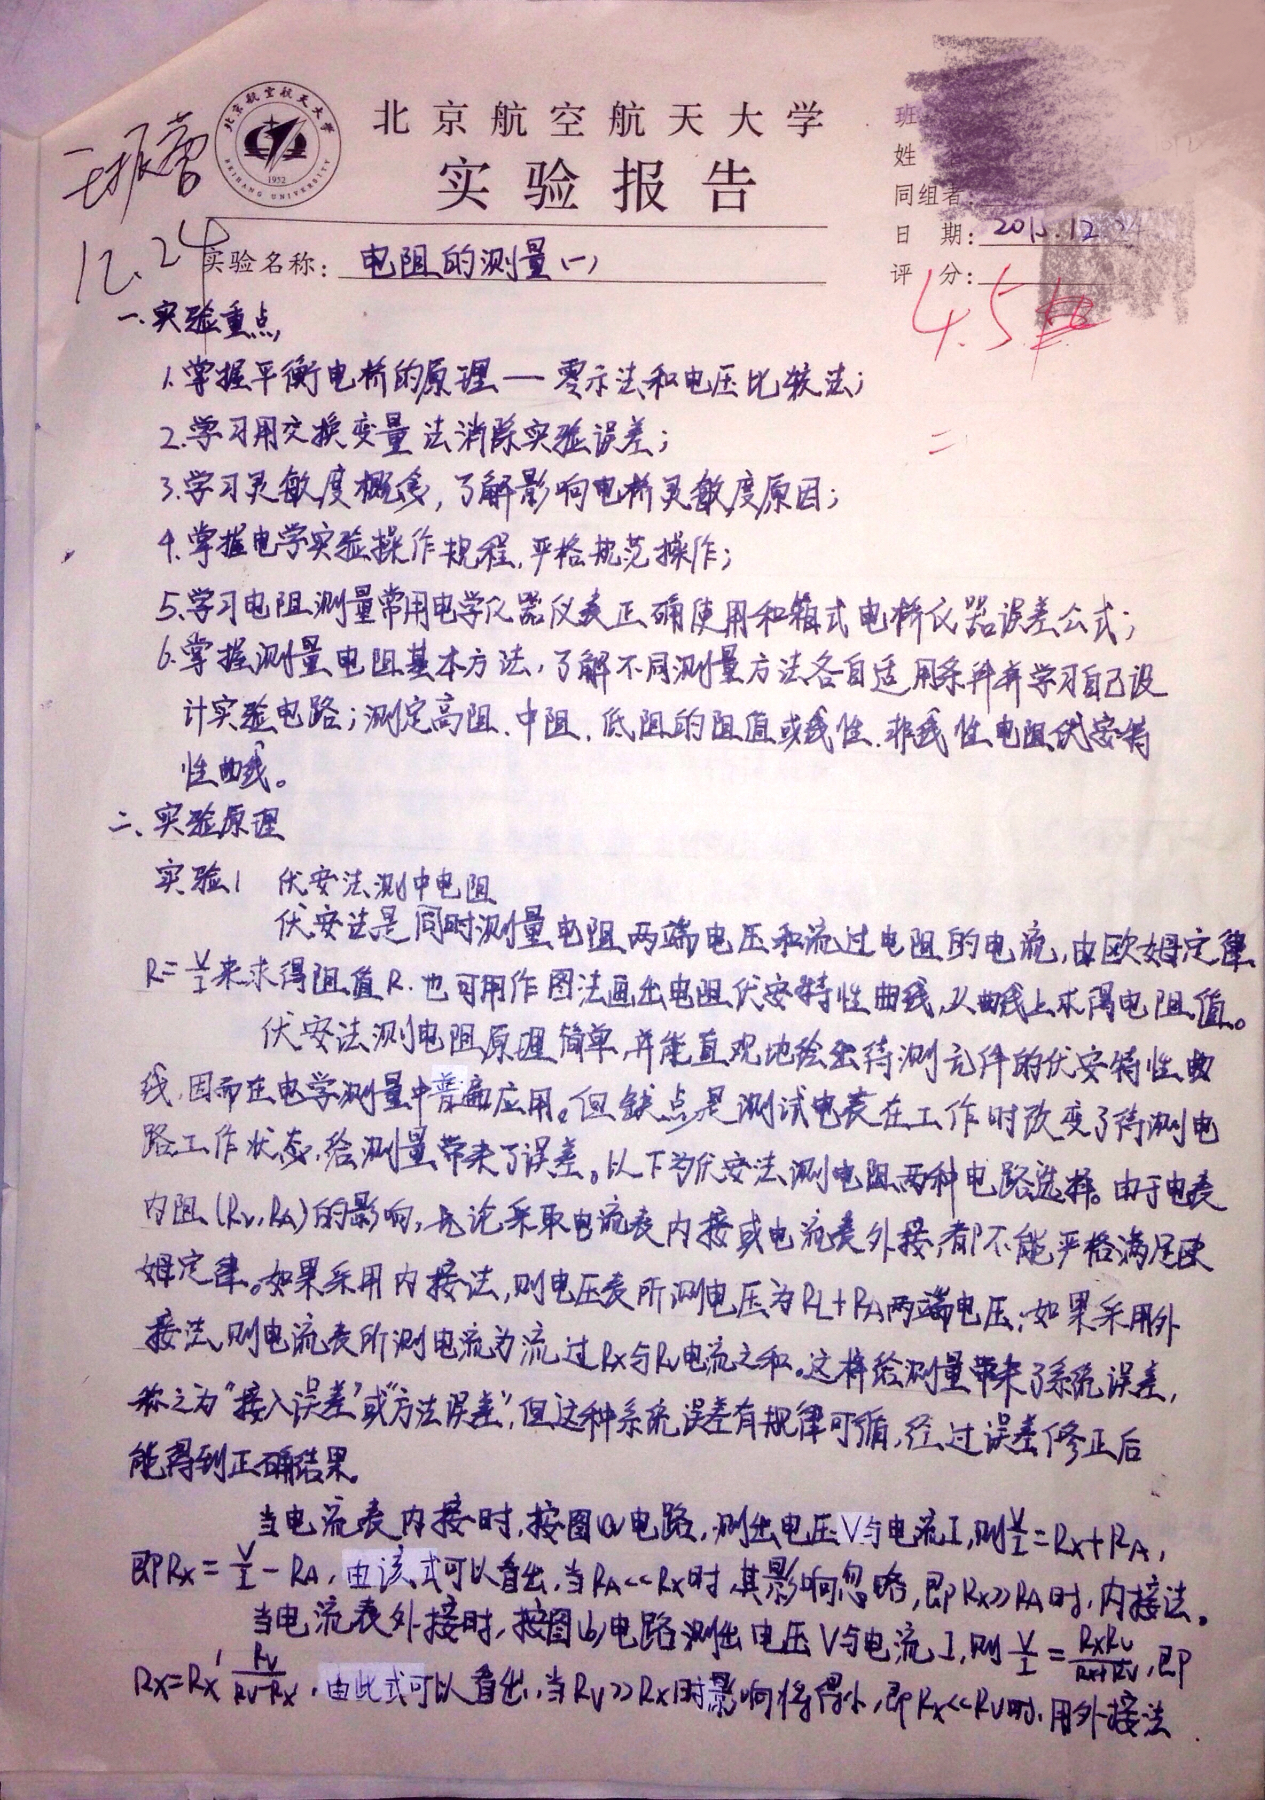 北京航空航天大学
实验报告
北京航空航天大学
BEIHANG UNIVERSITY
1952
12.24
班
姓
同组者:
日 期: 2015.12.24
评 分:
4.5
实验名称: 电阻的测量(一)
一.实验重点
1.掌握平衡电桥的原理——零示法和电压比较法;
2.学习用交换变量法消除实验误差;
3.学习灵敏度概念,了解影响电桥灵敏度原因;
4.掌握电学实验操作规程,严格规范操作;
5.学习电阻测量常用电学仪器仪表正确使用和箱式电桥仪器误差公式;
6.掌握测量电阻基本方法,了解不同测量方法各自适用条件并学习自己设
计实验电路;测定高阻、中阻、低阻的阻值或线性、非线性电阻伏安特
性曲线。
二、实验原理
实验1 伏安法测中电阻
伏安法是同时测量电阻两端电压和流过电阻的电流,由欧姆定律
R=V/I来求得阻值R.也可用作图法画出电阻伏安特性曲线,从曲线上求得电阻值。
伏安法测电阻原理简单,并能直观地绘出待测元件的伏安特性曲
线,因而在电学测量中普遍应用。但缺点是测试电表在工作时改变了待测电
路工作状态,给测量带来了误差。以下为伏安法测电阻两种电路选择。由于电表
内阻(Rv,RA)的影响,无论采取电流表内接或电流表外接,都不能严格满足欧
姆定律。如果采用内接法,则电压表所测电压为RL+RA两端电压;如果采用外
接法,则电流表所测电流为流过Rx与Rv电流之和。这样给测量带来了系统误差,
称之为"接入误差"或"方法误差",但这种系统误差有规律可循,经过误差修正后
能得到正确结果。
当电流表内接时,按图(a)电路,测出电压V与电流I,则V/I=Rx+RA,
即Rx=V/I-RA,由该式可以看出,当RA<<Rx时,其影响忽略,即Rx>>RA时,内接法。
当电流表外接时,按图(b)电路测出电压V与电流I,则V/I=RxRv/(Rx+Rv),即
Rx=Rx' Rv/(Rv-Rx),由此式可以看出,当Rv>>Rx时影响将得小,即Rx<<Rv时,用外接法